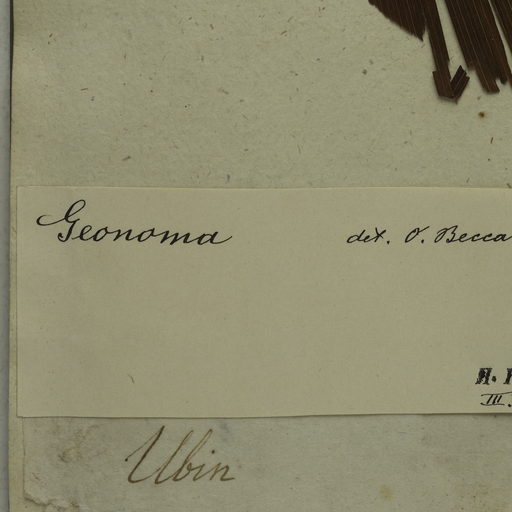 Geonoma det. O. Becca
H.
III.
Ubin